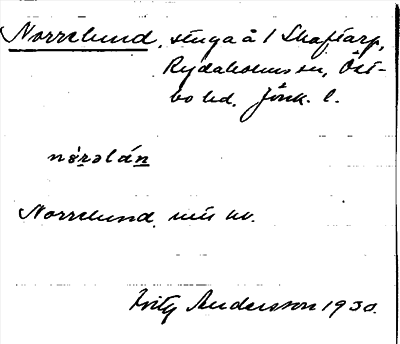 Norrelund, stuga å 1 Skaftarp,
Rydaholms sn, Öst-
bo hd. Jönk. l.
nørəlán
Norrelund, nuv.
Fritz Andersson 1930.